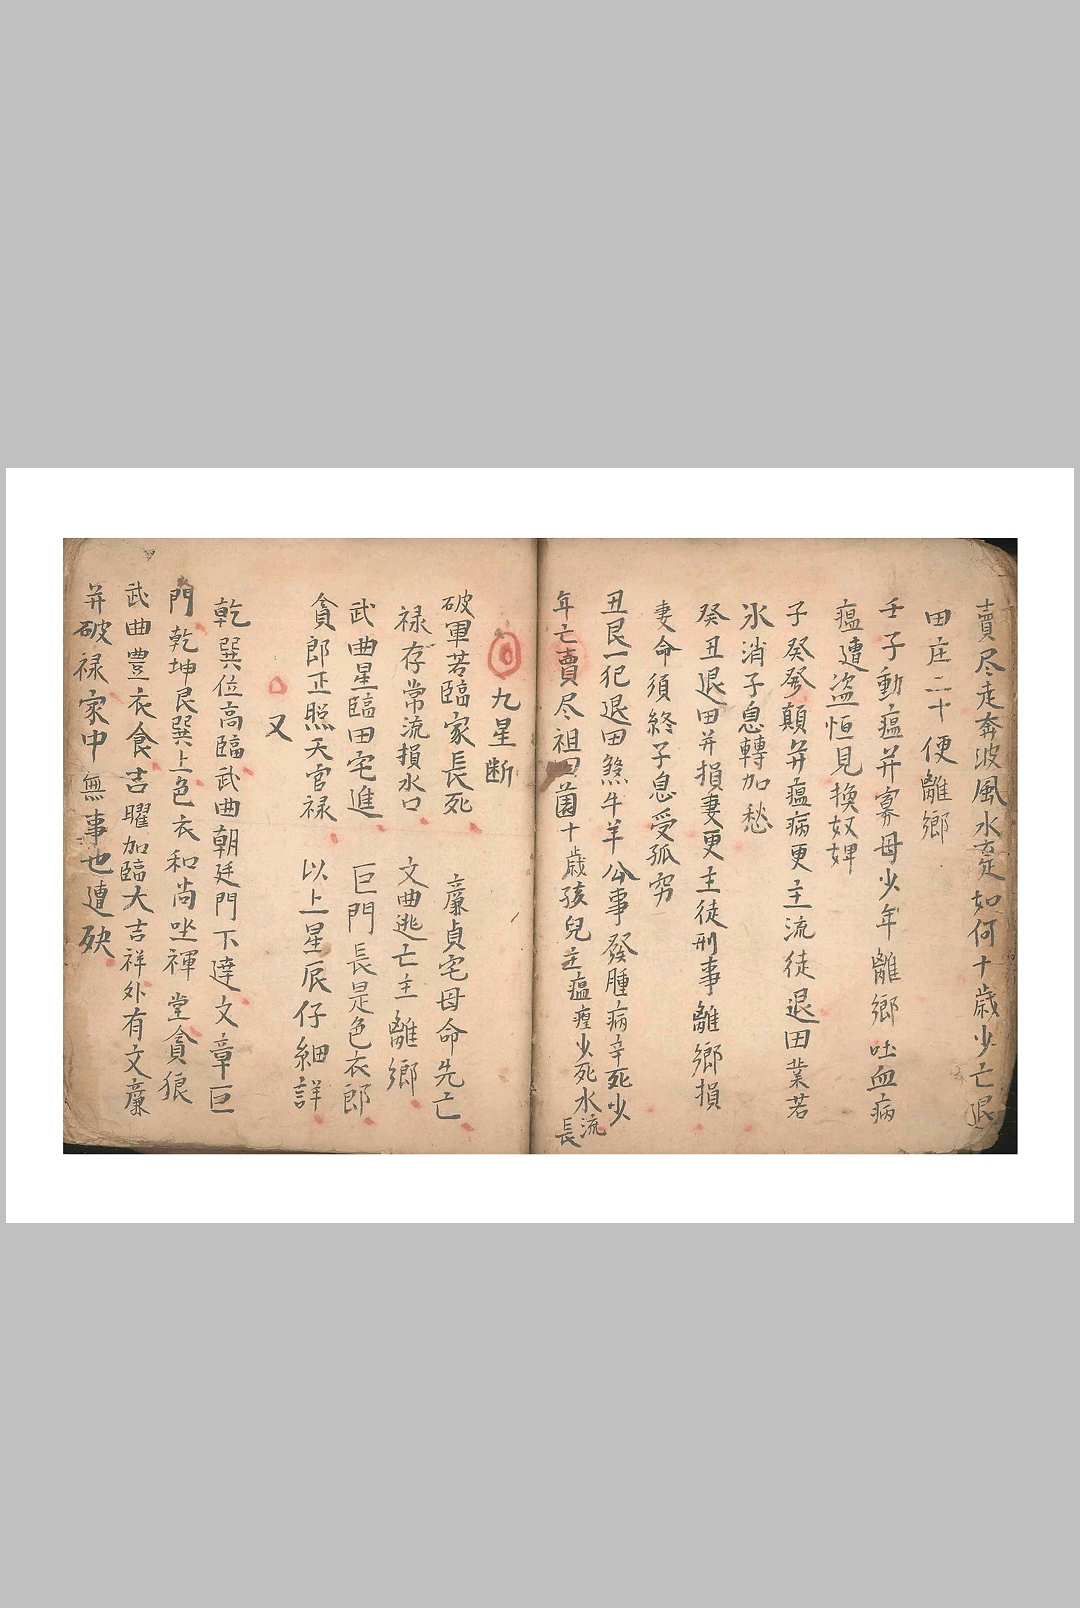 賣尽走奔波風水意如何十歲少亡退
田庄二十便離鄉
壬子動瘟并寡母少年離鄉吐血病
瘟遭盜恒見換奴婢
子癸發顛并瘟病更主流徒退田業若
氷消子息轉加愁
癸丑退田并損妻更主徒刑事離鄉損
妻命須終子息受孤穷
丑艮一犯退田煞牛羊公事發腫病辛死少
年亡賣尽祖田園十歲孩兒瘟少死水流長
九星断
破軍若臨家長死 廉貞宅母命先亡
禄存常流損水口 文曲逃亡主離鄉
武曲星臨田宅進 巨門長是色衣郎
貪郎正照天官禄 以上星辰仔細詳
又
乾巽位高臨武曲朝廷門下達文章巨
門乾坤艮巽上色衣和尚坐禪堂貪狼
武曲豊衣食吉曜加臨大吉祥外有文廉
并破禄家中無事也遭殃